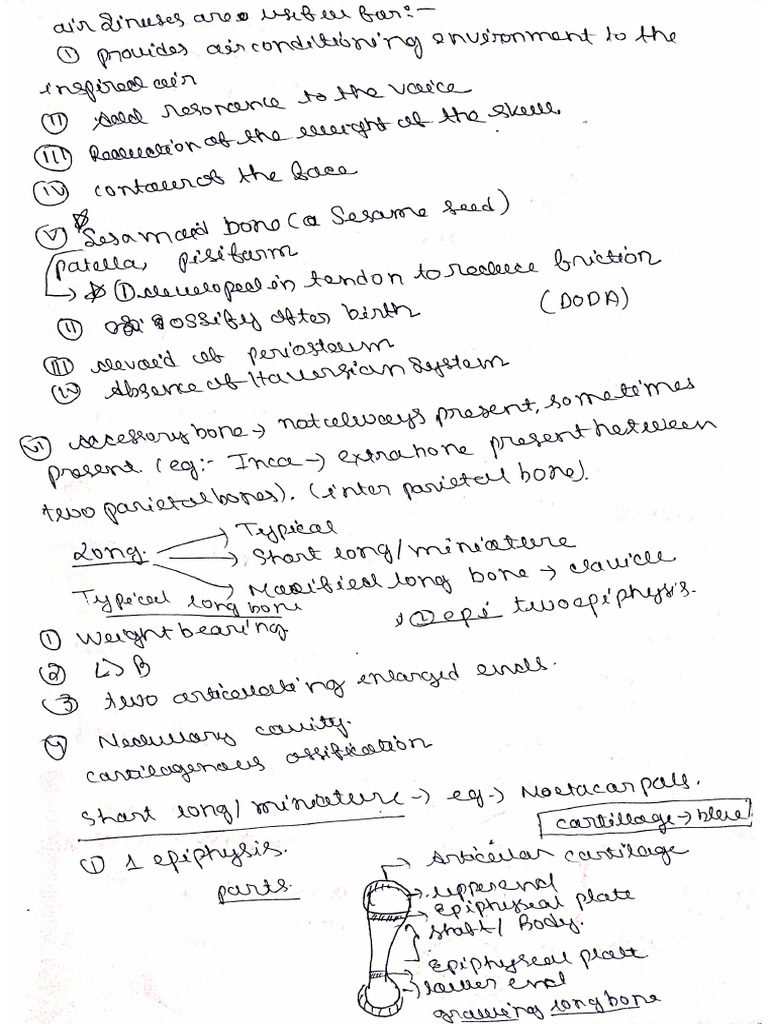 air sinuses are useful for:-
① provides airconditioning environment to the
inspired air
⑪ Add resonance to the voice
⑪⑪ Reduction of the weight of the skull.
ⓘⓥ contour of the face
Ⓥ Sesamoid bone (a Sesame seed)
patella, pisiform
→ ① developed in tendon to reduce friction
⑪ ossify after birth (DODA)
III devoid of periosteum
IV Absence of Haversian System
VI Accessory bone → not always present, sometimes
present. (eg:- Inca → extra bone present between
two parietal bones). (inter parietal bone).
Long. → Typical
→ Short long/miniature
→ Modified long bone → clavicle
Typical long bone
① Weight bearing ② epi two epiphysis.
② L > B
③ two articulating enlarged ends.
④ Medullary cavity.
cartilagenous ossification
Short long/miniature → eg → Metacarpals.
cartillage → blue
① 1 epiphysis.
parts.
→ Articular cartilage
→ upper end
→ Epiphyseal plate
Shaft/ Body.
Epiphyseal plate
lower end
growing long bone